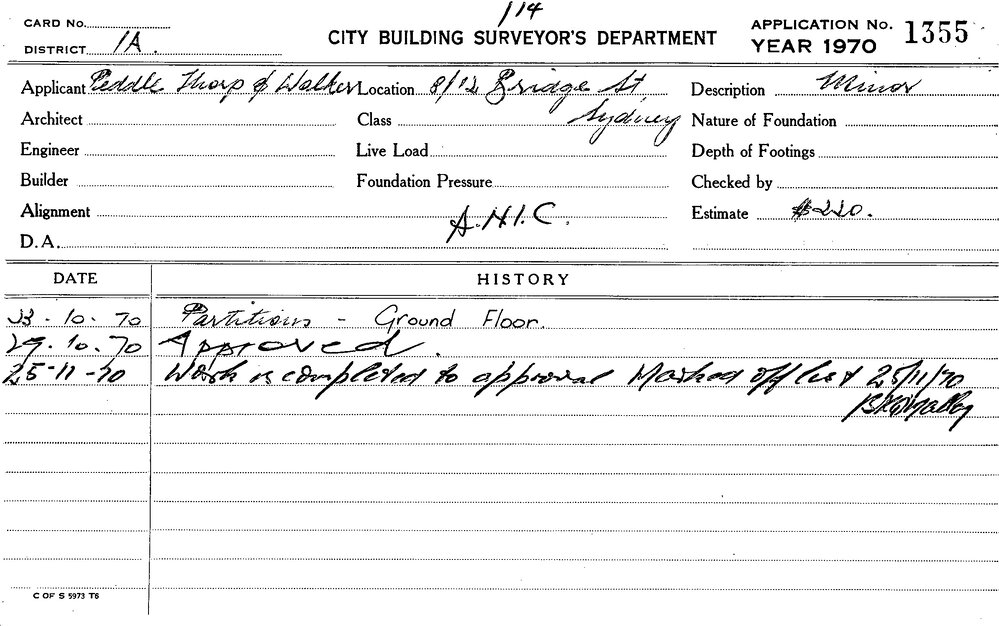 114
CARD No.
DISTRICT 1A.
CITY BUILDING SURVEYOR'S DEPARTMENT
APPLICATION No. 1355
YEAR 1970
Applicant Peddle Thorp & Walker Location 8/12 Bridge St Description Minor
Architect Class Sydney Nature of Foundation
Engineer Live Load Depth of Footings
Builder Foundation Pressure Checked by
Alignment A.H.I.C. Estimate $220.
D.A.
DATE HISTORY
23.10.70 Partitions - Ground Floor.
29.10.70 Approved.
25-11-70 Work is completed to approval Marked off list 25/11/70
C OF S 5973 T6